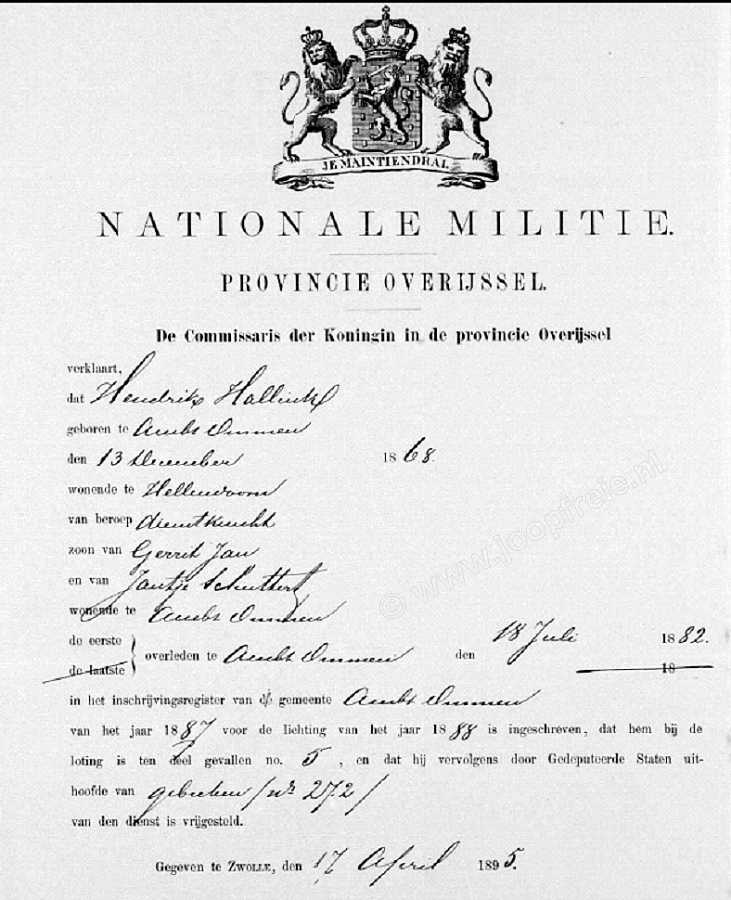 JE MAINTIENDRAI.
NATIONALE MILITIE.
PROVINCIE OVERIJSSEL.
De Commissaris der Koningin in de provincie Overijssel
verklaart,
dat Hendrik Hallink
geboren te Ambt Ommen
den 13 December 1868.
wonende te Hellendoorn
van beroep dienstknecht
zoon van Gerrit Jan
en van Jantje Schuttert
wonende te Ambt Ommen
de eerste
de laatste } overleden te Ambt Ommen den 18 Juli 1882.
18
in het inschrijvingsregister van de gemeente Ambt Ommen
van het jaar 1887 voor de lichting van het jaar 1888 is ingeschreven, dat hem bij de
loting is ten deel gevallen no. 5, en dat hij vervolgens door Gedeputeerde Staten uit-
hoofde van gebreken (no 272)
van den dienst is vrijgesteld.
Gegeven te ZWOLLE, den 17 April 1895.
© www.joopfrele.nl